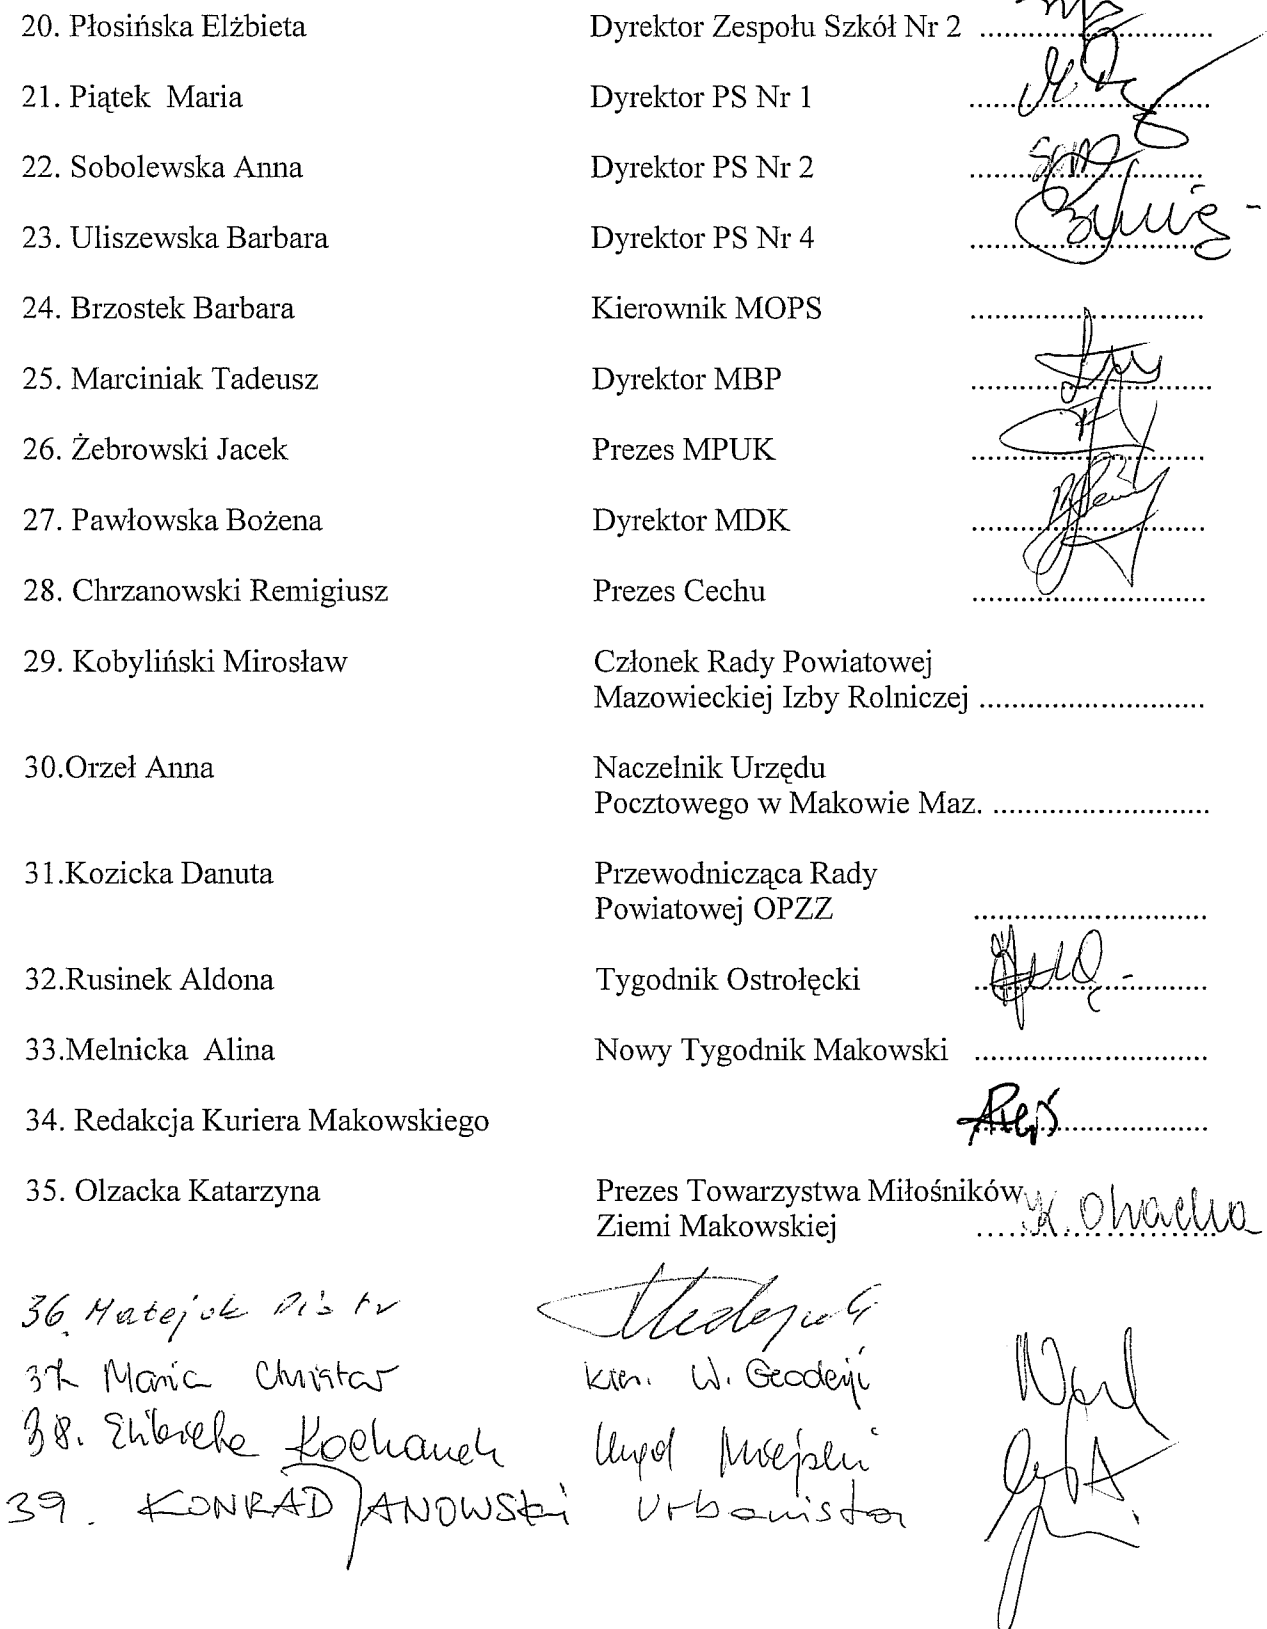 20. Płosińska Elżbieta Dyrektor Zespołu Szkół Nr 2 ............................
21. Piątek Maria Dyrektor PS Nr 1 .............................
22. Sobolewska Anna Dyrektor PS Nr 2 ............................
23. Uliszewska Barbara Dyrektor PS Nr 4 ............................
24. Brzostek Barbara Kierownik MOPS ............................
25. Marciniak Tadeusz Dyrektor MBP .............................
26. Żebrowski Jacek Prezes MPUK ............................
27. Pawłowska Bożena Dyrektor MDK ............................
28. Chrzanowski Remigiusz Prezes Cechu ............................
29. Kobyliński Mirosław Członek Rady Powiatowej
Mazowieckiej Izby Rolniczej ...........................
30.Orzeł Anna Naczelnik Urzędu
Pocztowego w Makowie Maz. ..........................
31.Kozicka Danuta Przewodnicząca Rady
Powiatowej OPZZ ............................
32.Rusinek Aldona Tygodnik Ostrołęcki ............................
33.Melnicka Alina Nowy Tygodnik Makowski ............................
34. Redakcja Kuriera Makowskiego ............................
35. Olzacka Katarzyna Prezes Towarzystwa Miłośników
Ziemi Makowskiej ............................ K. Olzacka
36. Matejuk Piotr
37. Maria kier. W. Geodezji
38. Elżbieta Kochanek Urząd Miejski
39. KONRAD JANOWSKI urbanista